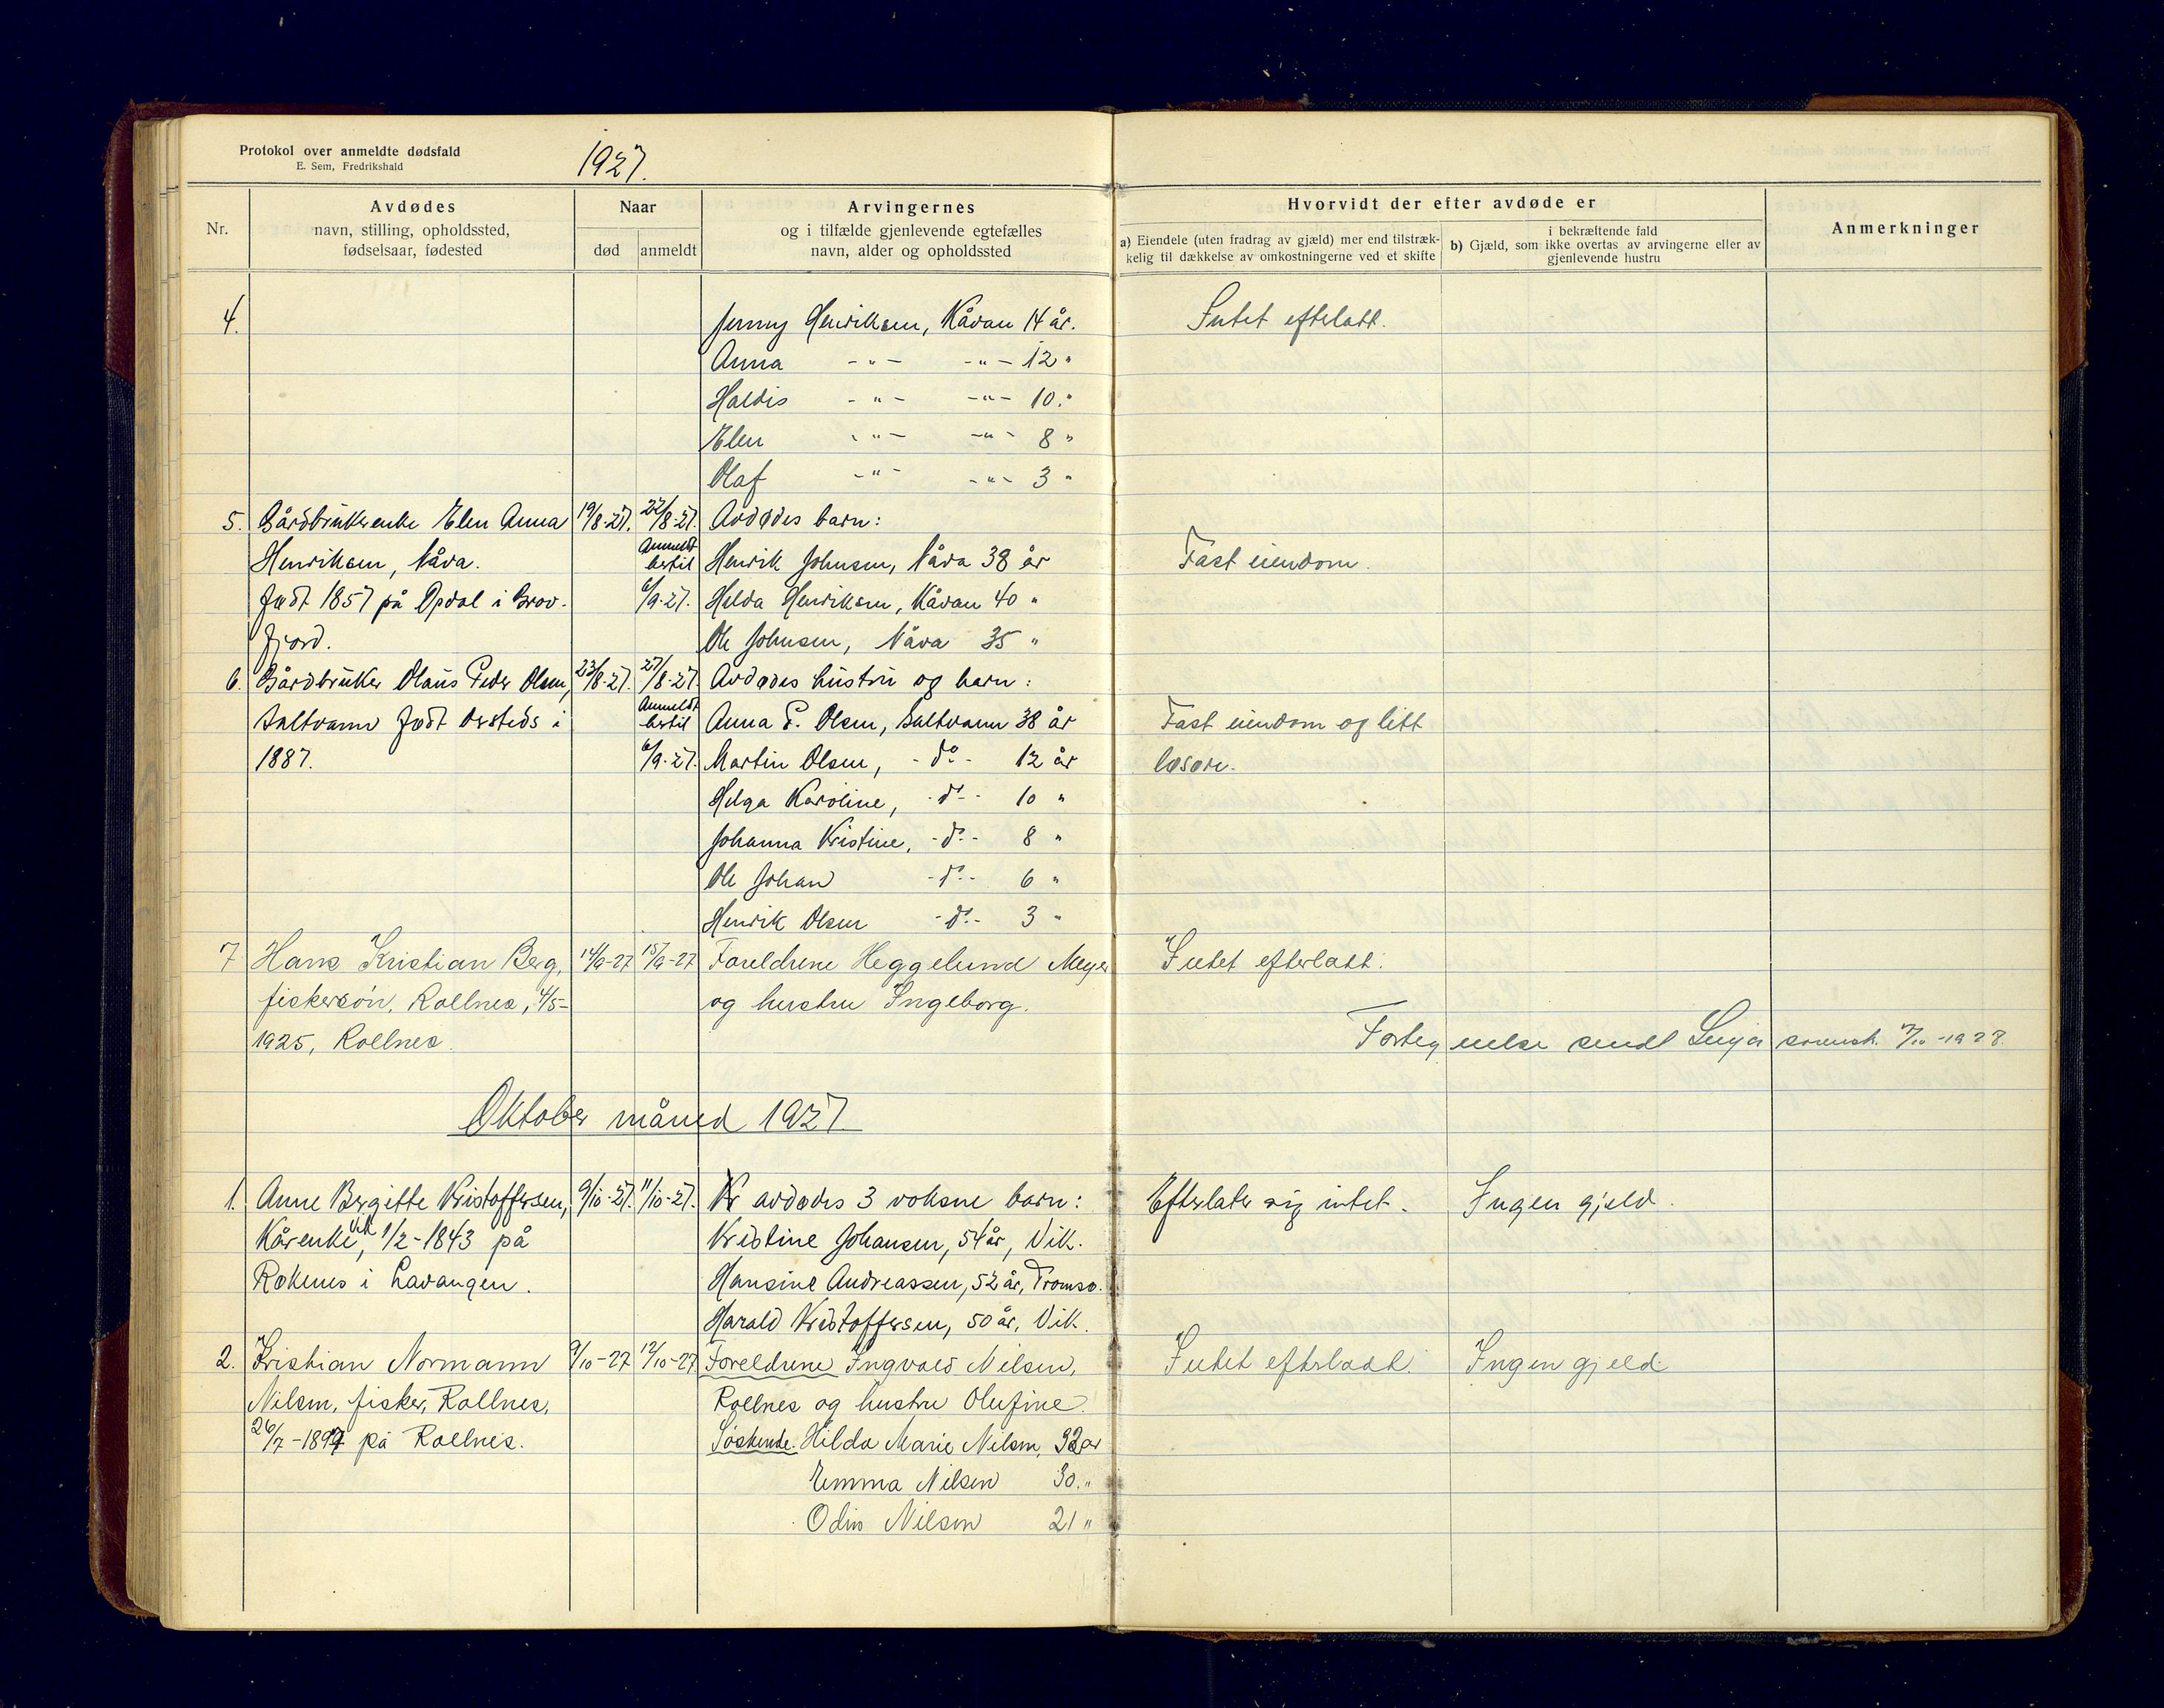 Protokol over anmeldte dødsfald
E. Sem, Fredrikshald
1927.
Nr.
Avdødes
navn, stilling, opholdssted,
fødselsaar, fødested
Naar
død
anmeldt
Arvingernes
og i tilfælde gjenlevende egtefælles
navn, alder og opholdssted
Hvorvidt der efter avdøde er
a) Eiendele (uten fradrag av gjæld) mer end tilstræk-
kelig til dækkelse av omkostningerne ved et skifte
i bekræftende fald
b) Gjæld, som ikke overtas av arvingerne eller av
gjenlevende hustru
Anmerkninger
4. Jenny Henriksen, Kåvan 14 år. Intet efterlatt.
Anna -"- -"- 12 "
Haldis -"- -"- 10 "
Elen -"- -"- 8 "
Olaf -"- -"- 3 "
5. Gårdbrukerenke Elen Anna 19/8-27. 22/8-27. Avdødes barn:
Henriksen, Nåva. Anmeldt hertil Henrik Johnsen, Nåva 38 år Fast eiendom.
født 1857 på Opdal i Grov- 6/9-27. Helda Henriksen, Kåvan 40 "
fjord. Ole Johnsen, Nåva 35 "
6. Gårdbruker Olaus Peder Olsen, 23/8-27. 27/8-27. Avdødes hustru og barn:
Saltvann født østeds i Anmeldt hertil Anna P. Olsen, Saltvann 38 år Fast eiendom og litt
1887. 6/9-27. Martin Olsen, -do- 12 år løsøre.
Helga Karoline, -do- 10 "
Johanna Kristine, -do- 8 "
Ole Johan -do- 6 "
Henrik Olsen -do- 3 "
7 Hans Kristian Berg, 14/9-27 15/9-27 Foreldrene Heggelund Meyer Intet efterlatt.
fiskersøn, Rollnes, 4/5- og hustru Ingeborg.
1925, Rollnes. Fortegnelse sendt Senja sorensk. 7/10-1928.
Oktober måned 1927
1. Anne Bergitte Kristoffersen, 9/10-27. 11/10-27. avdødes 3 voksne barn: Efterlater sig intet. Ingen gjeld.
Kårenke Vik, 1/2-1843 på Kristine Johansen, 54 år, Vik.
Røkenes i Lavangen. Hansine Andreassen, 52 år, Tromsø.
Harald Kristoffersen, 50 år, Vik.
2. Kristian Normann 9/10-27 12/10-27 Foreldrene Ingvald Nilsen, Intet efterlatt. Ingen gjeld.
Nilsen, fisker, Rollnes, Rollnes og hustru Olufine.
26/7-1897 på Rollnes. Søskende. Hilda Marie Nilsen, 32 år
Emma Nilsen 30 "
Odin Nilsen 21 "